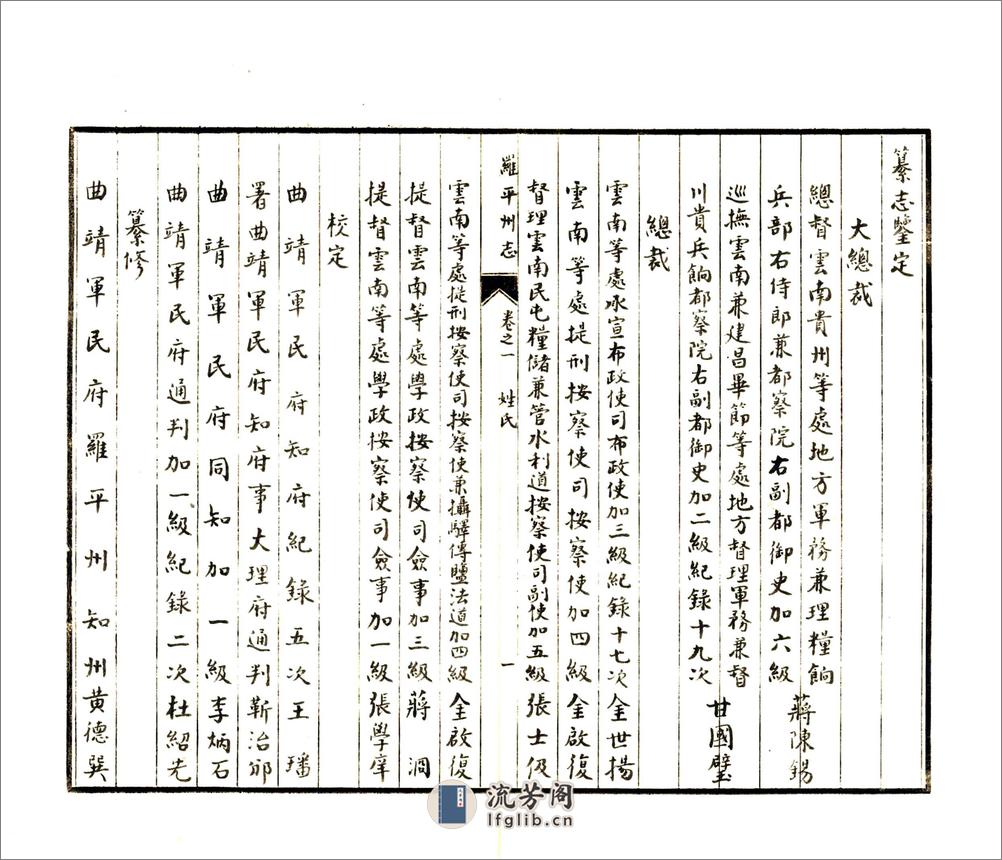 纂志鑒定
大總裁
總督雲南貴州等處地方軍務兼理糧餉
兵部右侍郎兼都察院右副都御史加六級
蔣陳錫
巡撫雲南兼建昌畢節等處地方督理軍務兼督
川貴兵餉都察院右副都御史加二級紀錄十九次
甘國璧
總裁
雲南等處承宣布政使司布政使加三級紀錄十七次金世揚
雲南等處提刑按察使司按察使加四級金啟復
督理雲南民屯糧儲兼管水利道按察使司副使加五級張士伋
羅平州志
卷之一
姓氏
一
雲南等處提刑按察使司按察使兼攝驛傳鹽法道加四級金啟復
提督雲南等處學政按察使司僉事加三級蔣泂
提督雲南等處學政按察使司僉事加一級張學庠
校定
曲靖軍民府知府紀錄五次王璠
署曲靖軍民府知府事大理府通判靳治邠
曲靖軍民府同知加一級李炳石
曲靖軍民府通判加一級紀錄二次杜紹先
纂修
曲靖軍民府羅平州知州黃德巽
流芳阁
lfglib.cn